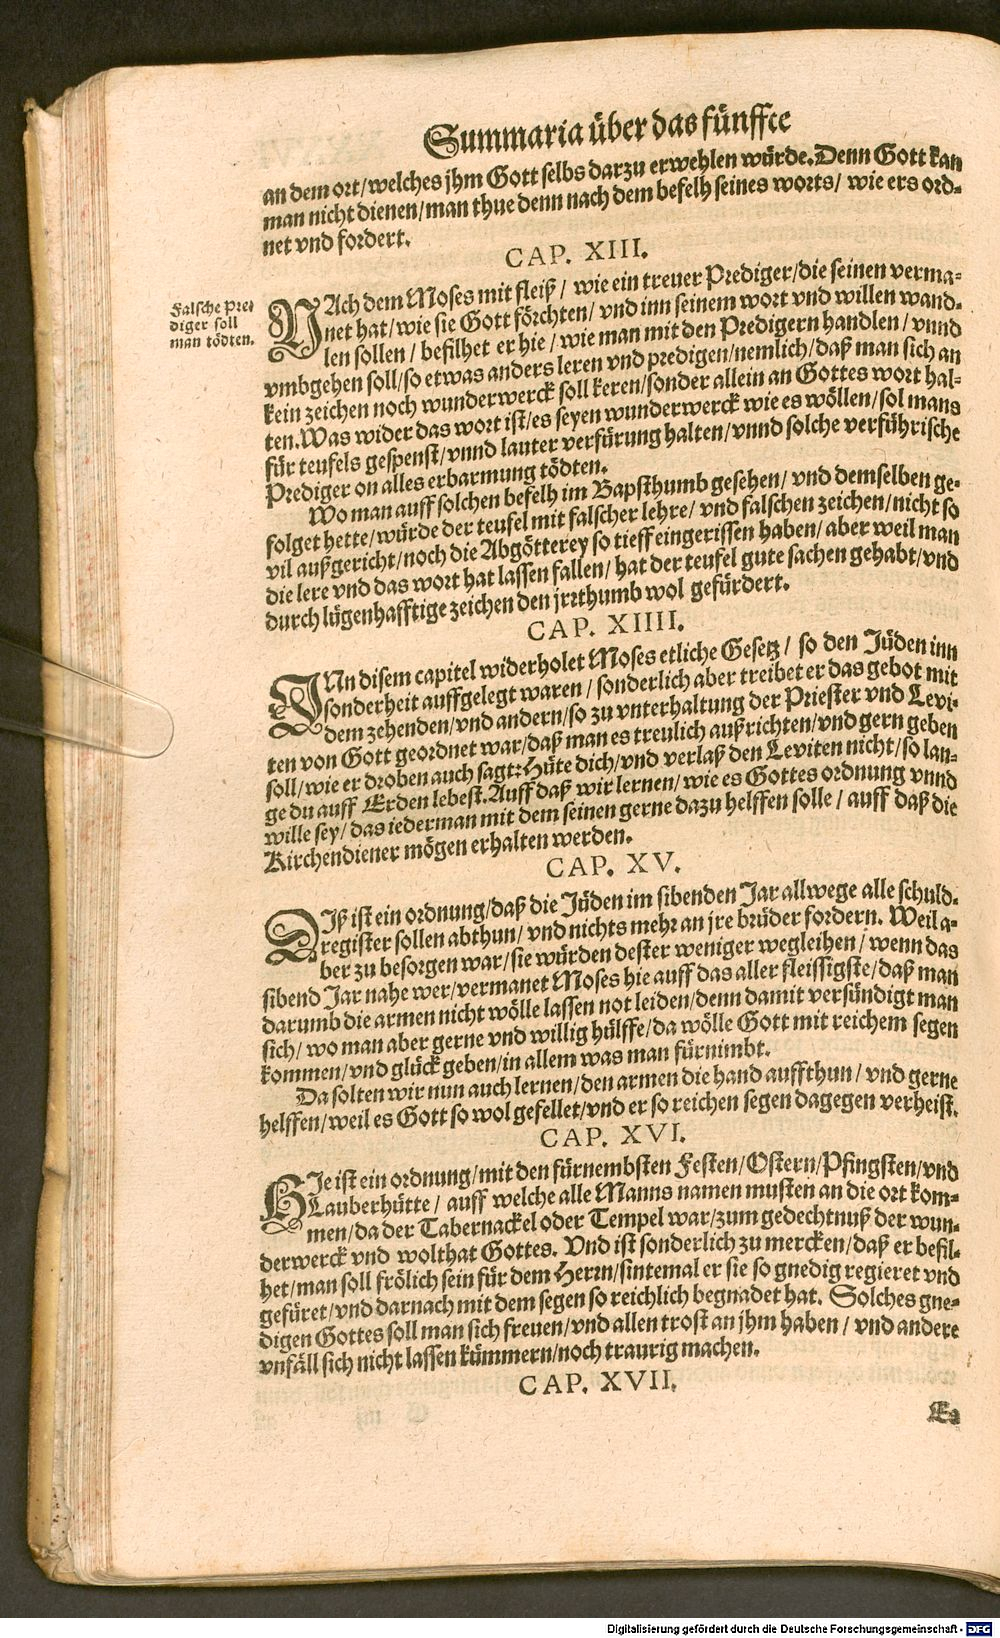 Summaria über das fünffte
an dem ort/welches jhm Gott selbs darzu erwehlen würde. Denn Gott kan
man nicht dienen/man thue denn nach dem befelh seines worts/ wie ers ord-
net vnd fordert.
CAP. XIII.
Falsche Pre-
diger soll
man tödten.
NAch dem Moses mit fleiß / wie ein treuer Prediger/die seinen verma-
net hat/wie sie Gott förchten/ vnd inn seinem wort vnd willen wand-
len sollen / befilhet er hie / wie man mit den Predigern handlen / vnnd
vmbgehen soll/so etwas anders leren vnd predigen/nemlich/daß man sich an
kein zeichen noch wunderwerck soll keren/sonder allein an Gottes wort hal-
ten. Was wider das wort ist/es seyen wunderwerck wie es wöllen/sol mans
für teufels gespenst/vnnd lauter verfürung halten/vnnd solche verführische
Prediger on alles erbarmung tödten.
Wo man auff solchen befelh im Bapsthumb gesehen/ vnd demselben ge-
folget hette/würde der teufel mit falscher lehre/ vnd falschen zeichen/nicht so
vil außgericht/noch die Abgötterey so tieff eingerissen haben/ aber weil man
die lere vnd das wort hat lassen fallen/ hat der teufel gute sachen gehabt/vnd
durch lügenhafftige zeichen den jrrthumb wol gefürdert.
CAP. XIIII.
INn disem capitel widerholet Moses etliche Gesetz / so den Jüden inn
sonderheit auffgelegt waren / sonderlich aber treibet er das gebot mit
dem zehenden/vnd andern/so zu vnterhaltung der Priester vnd Levi-
ten von Gott geordnet war/daß man es treulich außrichten/vnd gern geben
soll/wie er droben auch sagt: Hüte dich/vnd verlaß den Leviten nicht/so lan-
ge du auff Erden lebest. Auff daß wir lernen/ wie es Gottes ordnung vnnd
wille sey/ das iederman mit dem seinen gerne dazu helffen solle / auff daß die
Kirchendiener mögen erhalten werden.
CAP. XV.
DIß ist ein ordnung/daß die Jüden im sibenden Jar allwege alle schuld-
register sollen abthun/ vnd nichts mehr an jre brüder fordern. Weil a-
ber zu besorgen war/sie würden dester weniger wegleihen / wenn das
sibend Jar nahe wer/vermanet Moses hie auff das aller fleissigste/daß man
darumb die armen nicht wölle lassen not leiden/denn damit versündigt man
sich/ wo man aber gerne vnd willig hülffe/da wölle Gott mit reichem segen
kommen/vnd glück geben/in allem was man fürnimbt.
Da solten wir nun auch lernen/den armen die hand auffthun / vnd gerne
helffen/weil es Gott so wol gefellet/vnd er so reichen segen dagegen verheist.
CAP. XVI.
HIe ist ein ordnung/mit den fürnembsten Festen/Ostern/Pfingsten/vnd
Lauberhütte/ auff welche alle Manns namen musten an die ort kom-
men/da der Tabernackel oder Tempel war/zum gedechtnuß der wun-
derwerck vnd wolthat Gottes. Vnd ist sonderlich zu mercken/daß er befil-
het/man soll frölich sein für dem Herrn/sintemal er sie so gnedig regieret vnd
gefüret/vnd darnach mit dem segen so reichlich begnadet hat. Solches gne-
digen Gottes soll man sich freuen/vnd allen trost an jhm haben / vnd andere
vnfäll sich nicht lassen kümmern/noch traurig machen.
CAP. XVII.
Es
Digitalisierung gefördert durch die Deutsche Forschungsgemeinschaft - DFG